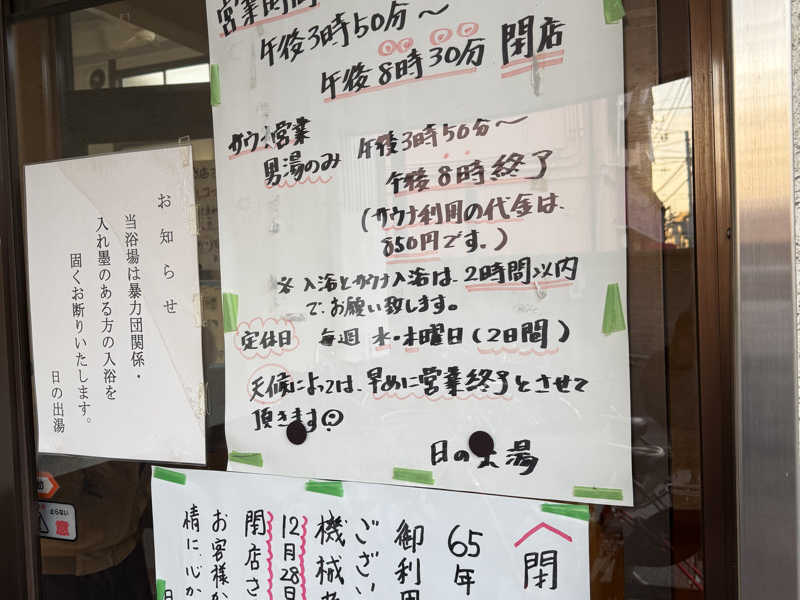 営業時間
午後3時50分〜
午後8時30分 閉店
サウナ営業
男湯のみ
午後3時50分〜
午後8時終了
(サウナ利用の代金は、
850円です。)
※入浴とサウナ入浴は、2時間以内
で、お願い致します。
定休日 毎週 水・木曜日(2日間)
天候によっては、早めに営業終了とさせて
頂きます
日の出湯
お知らせ
当浴場は暴力団関係・
入れ墨のある方の入浴を
固くお断りいたします。
日の出湯
閉
65年
御利用
ござい
機械
12月28日
閉店さ
お客様か
情に、心か
日
止らない
注意